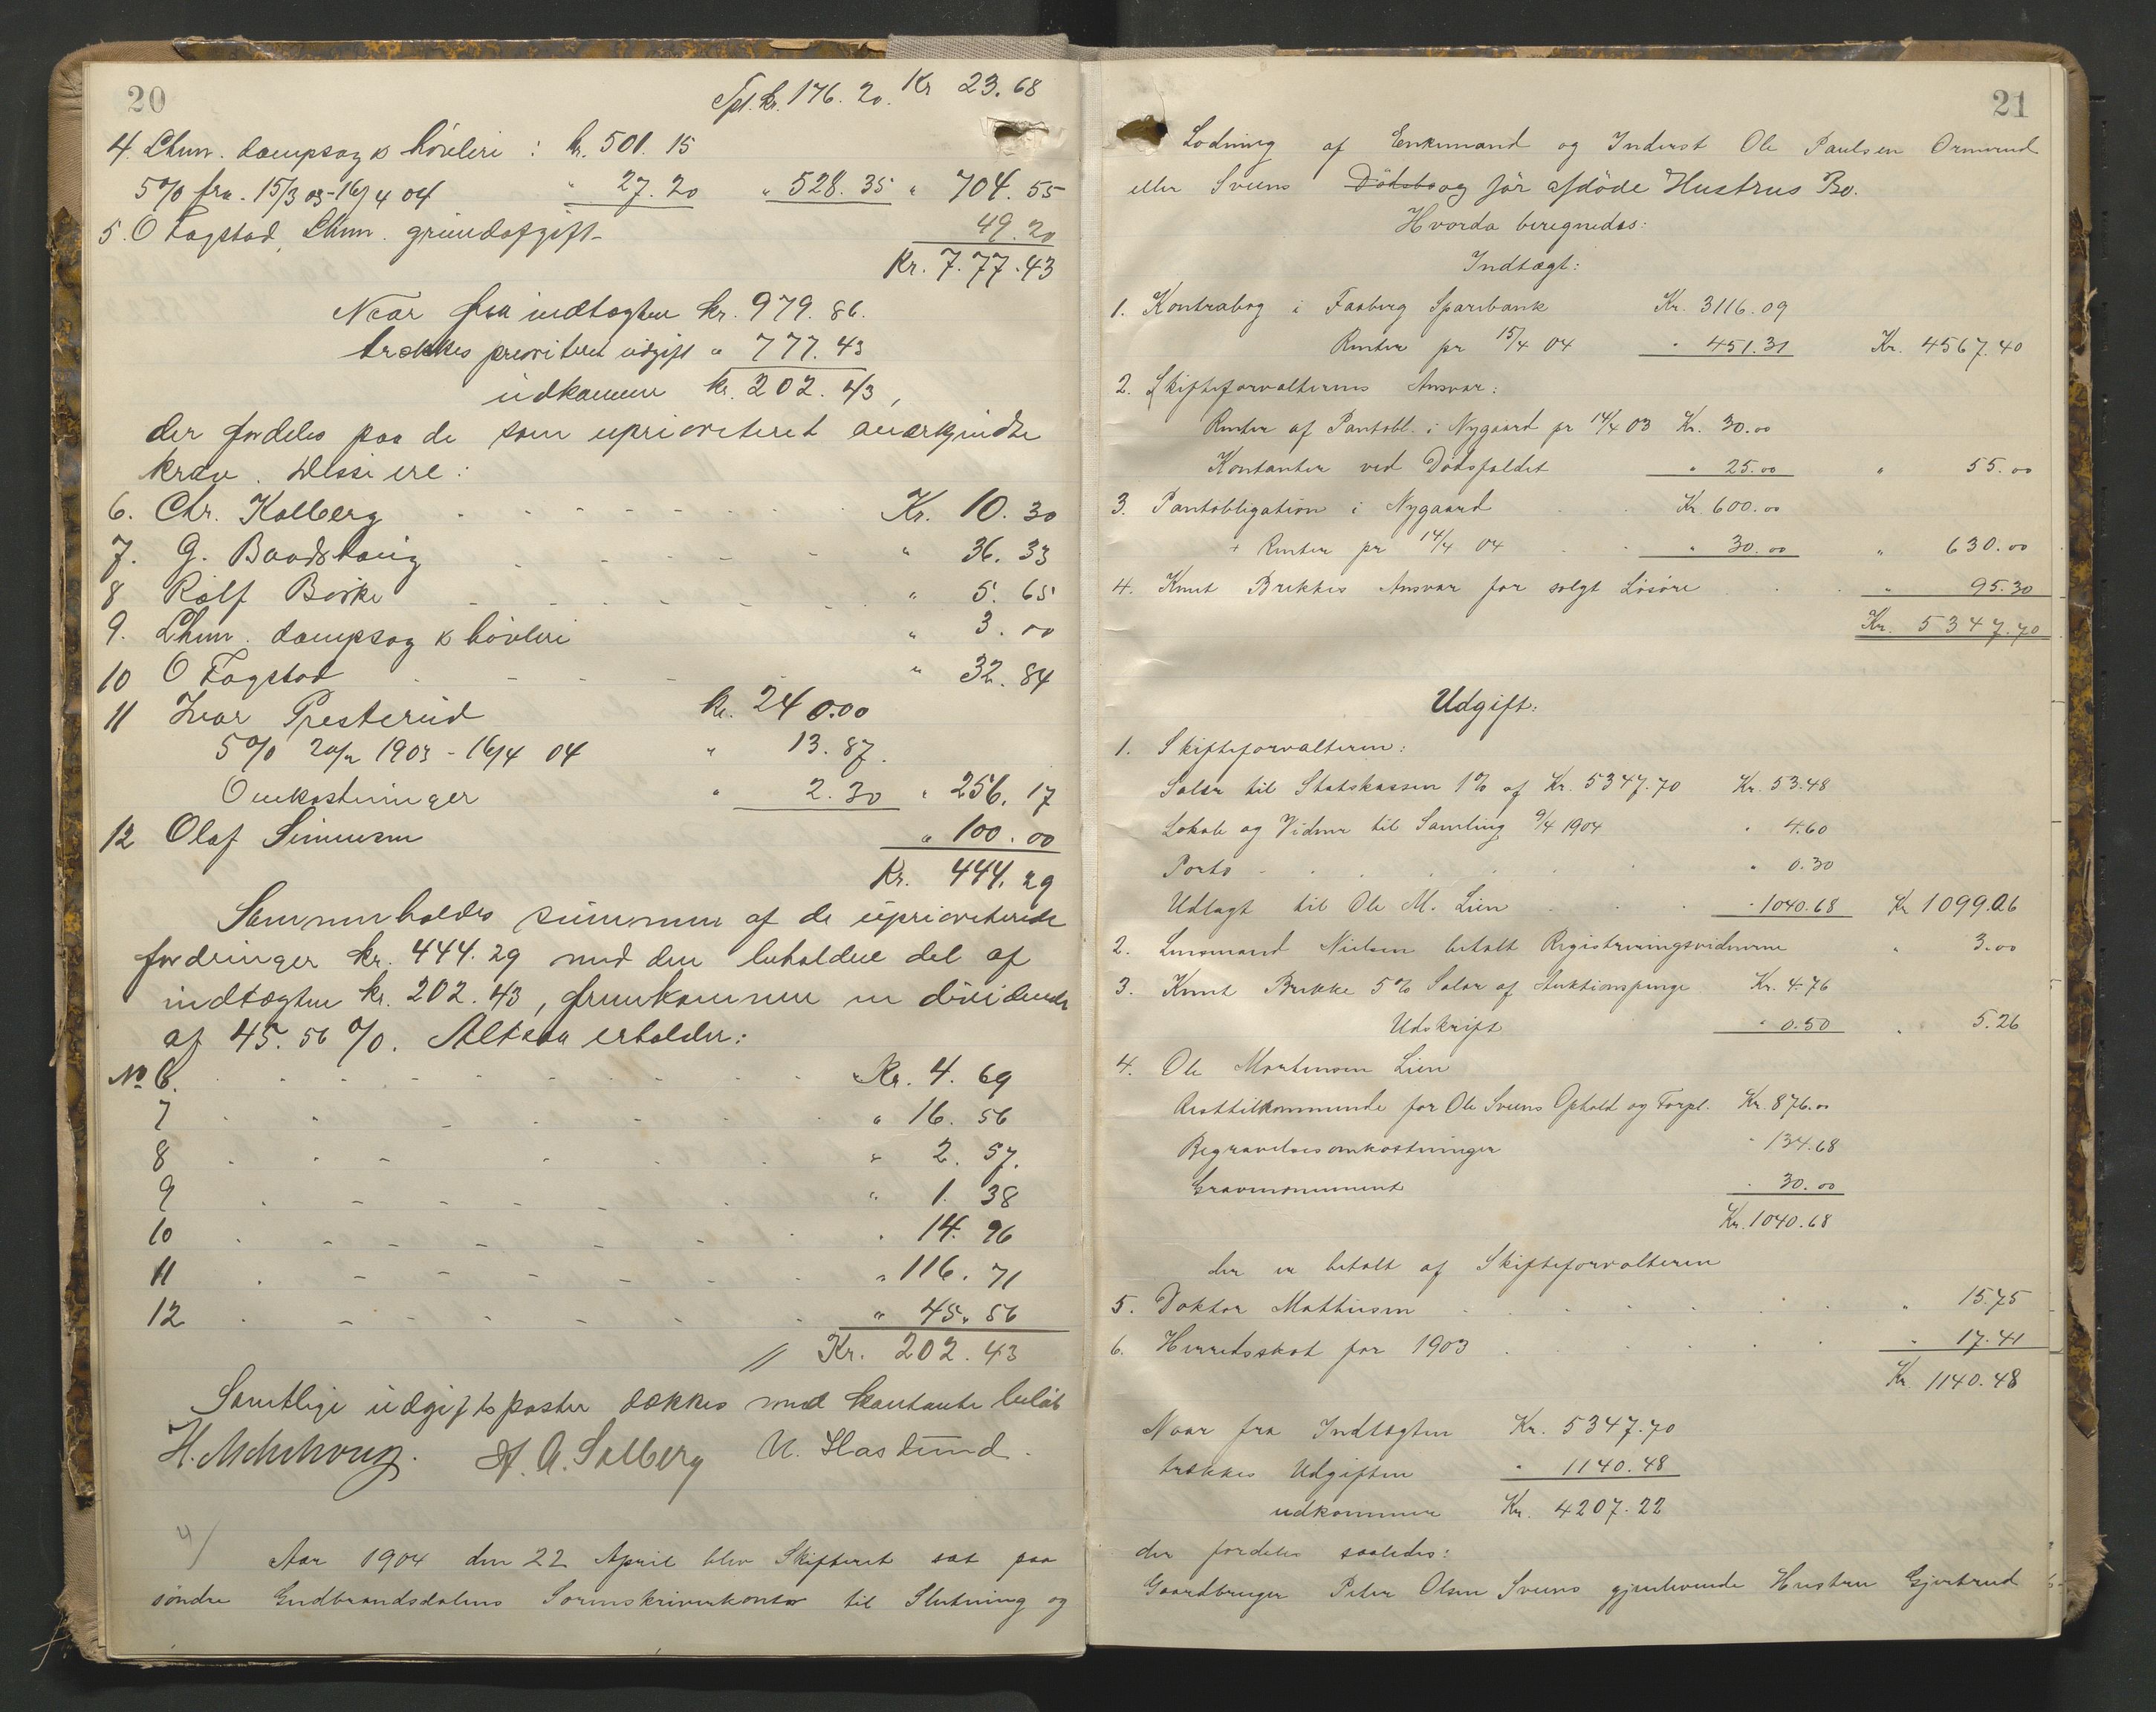 20
Spl. kr. 176. 20. Kr 23. 68
4. Lhmr. dampsag & høvleri : kr. 501. 15
5% fra. 15/3 03 - 16/4 04 " 27. 20 " 528. 35 " 704. 55
5. O Fagstad, Lhmr. grundafgift - 49. 20
Kr. 7.77.43
Naar fra indtægten kr. 979. 86.
trækkes prioriteret udgift " 777. 43
udkommer kr. 202. 43,
der fordeles paa de som uprioriteret anerkjendte
krav. Disse ere :
6. Chr. Kolberg Kr. 10. 30
7. G. Baadshaug " 36. 33
8 Rolf Birke " 5. 65
9. Lhmr. dampsag & høvleri " 3. 00
10 O Fagstad " 32. 84
11 Ivar Presterud kr. 240.00
5% 20/2 1903 - 16/4 04 " 13. 87.
Omkostninger " 2. 30 " 256. 17
12 Olaf Simensen " 100. 00
Kr. 444. 29
Sammenholdes summen af de uprioriterede
fordringer kr. 444. 29 med den beholdne del af
indtægten kr. 202. 43, fremkommer en dividende
af 45. 56 %. Altsaa erholder:
No 6. Kr. 4. 69
7 " 16. 56
8 " 2. 57.
9 " 1. 38
10 " 14. 96
11 " 116. 71
12 " 45. 56
// Kr. 202. 43
Samtlige udgiftsposter dækkes med kontante beløb
H. A. Solberg N. Haslund.
4/
Aar 1904 den 22 April blev Skifteret sat paa
søndre Gudbrandsdalens Sorenskriverkontor til Slutning og
21
Lodning af Enkemand og Inderst Ole Paulsen Ormerud
eller Sveens Dødsbo og før afdøde Hustrus Bo.
Hvorda beregnedes:
Indtægt:
1. Kontrabog i Faaberg Sparebank Kr. 3116.09
Renter pr 15/4 04 " 451.31 Kr. 4567.40
2. Skifteforvalterens Ansvar:
Renter af Pantobl. i Nygaard pr 14/4 03 Kr. 30.00
Kontanter ved Dødsfaldet " 25.00 " 55.00
3. Pantobligation i Nygaard Kr. 600.00
+ Renter pr 14/4 04 " 30.00 " 630.00
4. Knut Brekkes Ansvar for solgt Løsøre " 95.30
Kr. 5347.70
Udgift:
1. Skifteforvalteren:
Salær til Statskassen 1% af Kr. 5347.70 Kr. 53.48
Lokale og Vidner til Samling 9/4 1904 " 4.60
Porto " 0.30
Udlagt til Ole M. Lien " 1040.68 Kr 1099.06
2. Lensmand Nielsen betalt Registreringsvidnerne " 3.00
3. Knut Brekke 5% Salær af Auktionspenge Kr. 4.76
Udskrift " 0.50 " 5.26
4. Ole Mortensen Lien
Resttilkommende for Ole Sveens Ophold og Forpl. Kr. 876.00
Begravelsesomkostninger " 134.68
Gravmonument " 30.00
Kr. 1040.68
der er betalt af Skifteforvalteren
5. Doktor Mathiesen " 15.75
6. Herredsskat for 1903 " 17.41
Kr 1140.48
Naar fra Indtægten Kr. 5347.70
trækkes Udgiften " 1140.48
udkommer Kr. 4207.22
der fordeles saaledes:
Gaardbruger Peter Olsen Sveens gjenlevende Hustru Gjertrud